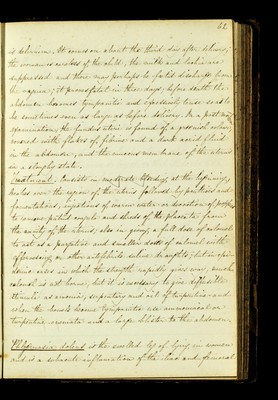 62
is delirium. It comes on about the third day after delivery;
the woman is careless of the child; the milk and lochia are
suppressed and there may perhaps be fœtid discharge from
the vagina; it proves fatal in three days; before death the
abdomen becomes tympanitic and excessively tense so as to
be sometimes even as large as before delivery. In a post mortem
examination, the fundus uteri is found of a greenish colour,
covered with flakes of fibrine and a dark acrid fluid
in the abdomen; and the mucous membrane of the uterus
in a sloughy state.
Treatment. Consists in moderate bleeding at the beginning;
leeches over the region of the uterus followed by poultices and
fomentations, injections of warm water or decoction of poppies
to remove putrid coagula and shreds of the placenta from
the cavity of the uterus; also in giving a full dose of calomel
to act as a purgative and smaller doses of calomel with
effervescing or other antiphlogistic saline draughts; but in
some cases in which the strength rapidly gives way, much
calomel is not borne, but it is necessary to give diffusible
stimuli as ammonia, serpentary and oil of turpentine and
when the bowels become tympanitic use ammoniacal or
turpentine enemata and a large blister to the abdomen.
Phlegmasia dolens is the swelled leg of lying in women
and is a subacute inflammation of the iliac and femoral